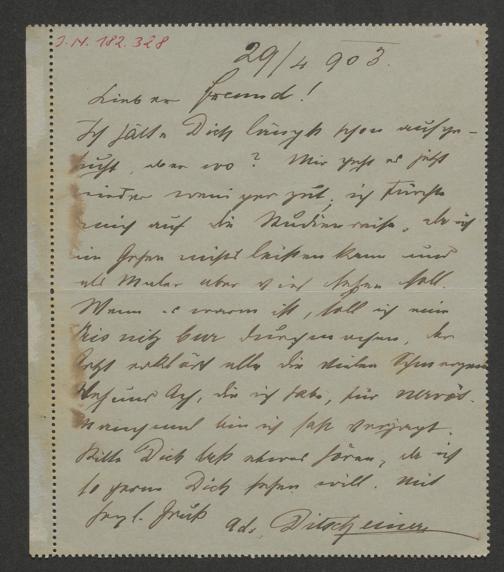 J.N. 182.328
29/4 903.
Lieber Freund!
Ich hätte Dich längst schon aufge-
sucht, aber wo? Mir geht es jetzt
wieder weniger gut, ich fürchte
mich auf die Studienreise, da ich
im Gehen nichts leisten kann und
als Maler aber viel sehen soll.
Wenn es warm ist, soll ich eine
Prisnitz Cur durchmachen, der
Arzt erklärt alle die vielen Schmerzen
die ich habe, für nervös.
Manchmal bin ich fast verzagt.
Bitte Dich laß etwas hören, da ich
so gerne Dich sehen will. Mit
herzl. Gruß Ad. Ditscheiner